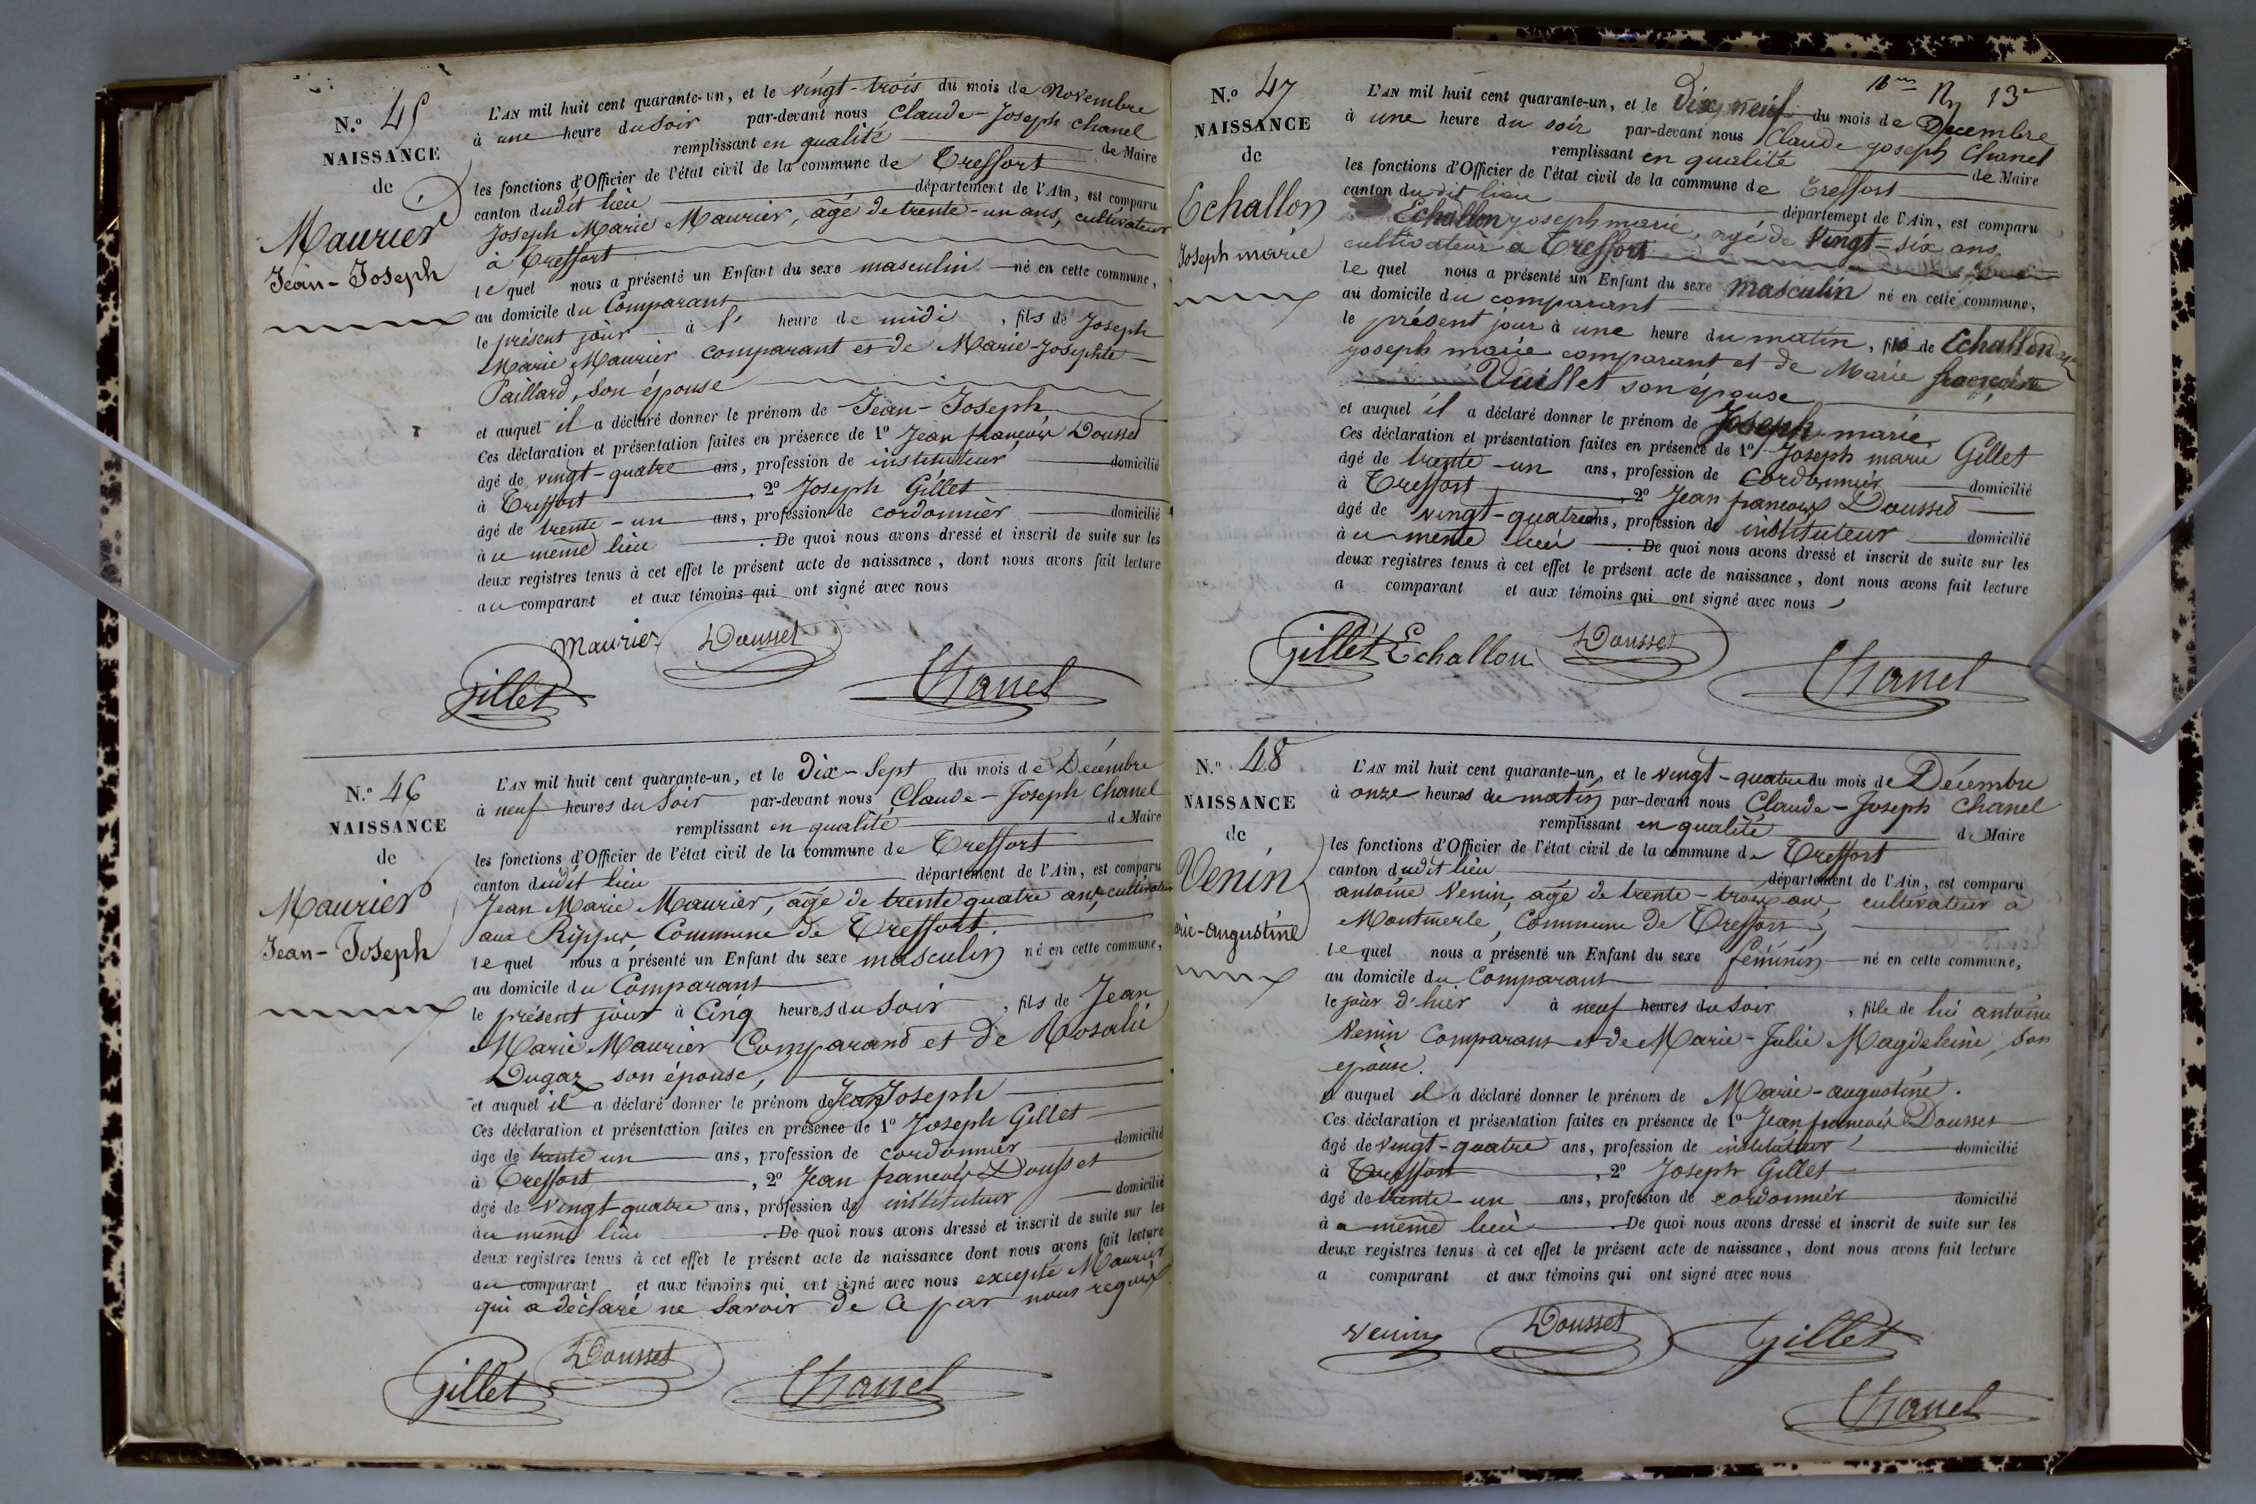 N.o 45
NAISSANCE
de
Maurier
Jean-Joseph
L'AN mil huit cent quarante-un, et le vingt-trois du mois de Novembre
à une heure du soir par-devant nous Claude-Joseph Chanel
remplissant en qualité de Maire
les fonctions d'Officier de l'état civil de la commune de Treffort
canton dudit lieu département de l'Ain, est comparu
Joseph Marie Maurier, âgé de trente-un ans, cultivateur
à Treffort
le quel nous a présenté un Enfant du sexe masculin né en cette commune,
au domicile du Comparant
le présent jour à l' heure de midi, fils de Joseph
Marie Maurier comparant et de Marie-Josephte
Paillard, son épouse
et auquel il a déclaré donner le prénom de Jean-Joseph
Ces déclaration et présentation faites en présence de 1o Jean françois Dousset
âgé de vingt-quatre ans, profession de instituteur domicilié
à Treffort, 2o Joseph Gillet
âgé de trente-un ans, profession de cordonnier domicilié
à u même lieu. De quoi nous avons dressé et inscrit de suite sur les
deux registres tenus à cet effet le présent acte de naissance, dont nous avons fait lecture
au comparant et aux témoins qui ont signé avec nous
Maurier Dousset
Gillet Chanel
N.o 46
NAISSANCE
de
Maurier
Jean-Joseph
L'AN mil huit cent quarante-un, et le Dix-Sept du mois de Décembre
à neuf heures du Soir par-devant nous Claude-Joseph Chanel
remplissant en qualité de Maire
les fonctions d'Officier de l'état civil de la commune de Treffort
canton dudit lieu département de l'Ain, est comparu
Jean Marie Maurier, âgé de trente quatre ans, cultivateur
aux Rippes Commune de Treffort.
le quel nous a présenté un Enfant du sexe masculin né en cette commune,
au domicile du Comparant
le présent jour à Cinq heures du Soir, fils de Jean
Marie Maurier Comparand et de Rosalie
Dugaz son épouse,
et auquel il a déclaré donner le prénom de Jean Joseph
Ces déclaration et présentation faites en présence de 1o Joseph Gillet
âge de trente un ans, profession de cordonnier domicilié
à Treffort, 2o Jean francois Dousset
âgé de Vingt-quatre ans, profession de instituteur domicilié
au même lieu. De quoi nous avons dressé et inscrit de suite sur les
deux registres tenus à cet effet le présent acte de naissance dont nous avons fait lecture
au comparant et aux témoins qui ont signé avec nous excepté Maurier
qui a déclaré ne Savoir de Ce par nous requis
Dousset
Gillet Chanel
13
N.o 47
NAISSANCE
de
Echallon
Joseph marie
L'AN mil huit cent quarante-un, et le Dix neuf du mois de Decembre
à une heure du soir par-devant nous Claude joseph Chanel
remplissant en qualité de Maire
les fonctions d'Officier de l'état civil de la commune de Treffort
canton du dit lieu département de l'Ain, est comparu
Echallon joseph marie, agé de Vingt-six ans
cultivateur a Treffort
le quel nous a présenté un Enfant du sexe masculin né en cette commune,
au domicile du comparant
le présent jour à une heure du matin, fils de Echallon
joseph marie comparant et de Marie françoise
Vuillet son épouse
et auquel il a déclaré donner le prénom de Joseph-marie
Ces déclaration et présentation faites en présence de 1o Joseph marie Gillet
âgé de trente-un ans, profession de Cordonnier domicilié
à Treffort, 2o Jean francois Dousset
âgé de vingt-quatre ans, profession de instituteur domicilié
à u même lieu. De quoi nous avons dressé et inscrit de suite sur les
deux registres tenus à cet effet le présent acte de naissance, dont nous avons fait lecture
a comparant et aux témoins qui ont signé avec nous
Gillet Echallon Dousset
Chanel
N.o 48
NAISSANCE
de
Venin
rie-augustine
L'AN mil huit cent quarante-un, et le vingt-quatre du mois de Décembre
à onze heures du matin par-devant nous Claude-Joseph Chanel
remplissant en qualité de Maire
les fonctions d'Officier de l'état civil de la commune de Treffort
canton dudit lieu département de l'Ain, est comparu
antoine Venin, agé de trente-trois ans, cultivateur à
Montmerle, Commune de Treffort,
le quel nous a présenté un Enfant du sexe féminin né en cette commune,
au domicile du Comparant
le jour d'hier à neuf heures du Soir, fille de lui antoine
Venin Comparant et de Marie-Julie Magdeleine, Son
épouse.
et auquel il a déclaré donner le prénom de Marie-augustine.
Ces déclaration et présentation faites en présence de 1o Jean francois Dousset
âgé de vingt-quatre ans, profession de instituteur domicilié
à Treffort, 2o Joseph Gillet
âgé de trente-un ans, profession de cordonnier domicilié
à u même lieu. De quoi nous avons dressé et inscrit de suite sur les
deux registres tenus à cet effet le présent acte de naissance, dont nous avons fait lecture
a comparant et aux témoins qui ont signé avec nous
Venin Dousset Gillet
Chanel